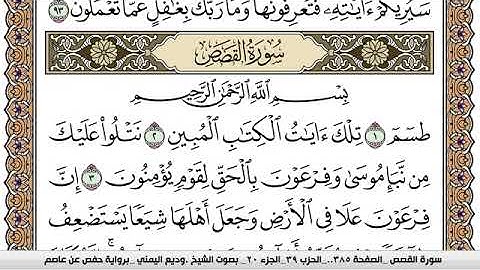 سَيُرِيكُمْ ءَايَٰتِهِۦ فَتَعْرِفُونَهَا وَمَا رَبُّكَ بِغَٰفِلٍ عَمَّا تَعْمَلُونَ ٩٣
سُورَةُ القَصَصِ
بِسْمِ ٱللَّهِ ٱلرَّحْمَٰنِ ٱلرَّحِيمِ
طسٓمٓ ١ تِلْكَ ءَايَٰتُ ٱلْكِتَٰبِ ٱلْمُبِينِ ٢ نَتْلُوا۟ عَلَيْكَ
مِن نَّبَإِ مُوسَىٰ وَفِرْعَوْنَ بِٱلْحَقِّ لِقَوْمٍ يُؤْمِنُونَ ٣ إِنَّ
فِرْعَوْنَ عَلَا فِى ٱلْأَرْضِ وَجَعَلَ أَهْلَهَا شِيَعًا يَسْتَضْعِفُ
سورة القصص _الصفحة ٣٨٥..الحزب ٣٩_الجزء ٢٠_ بصوت الشيخ .وديم اليمني _برواية حفص عن عاصم